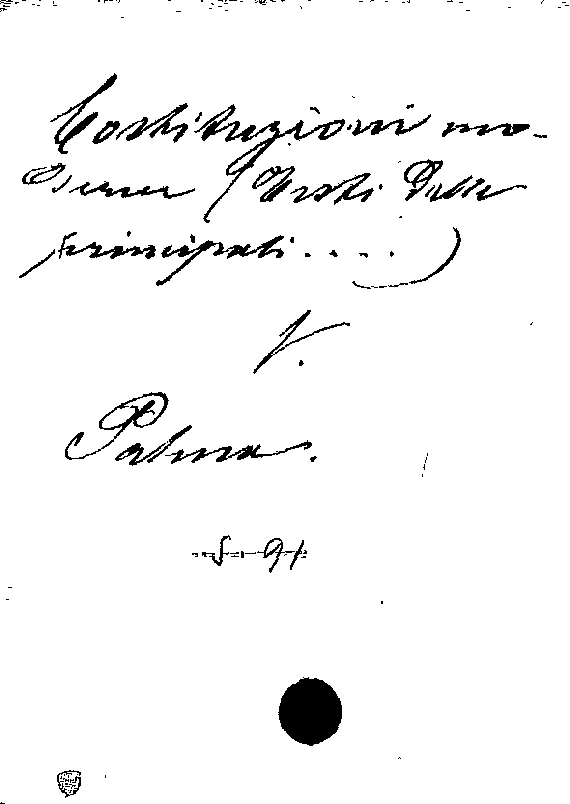 Costituzioni mo-
derne (Testi delle
principali....)
V.
Palma.